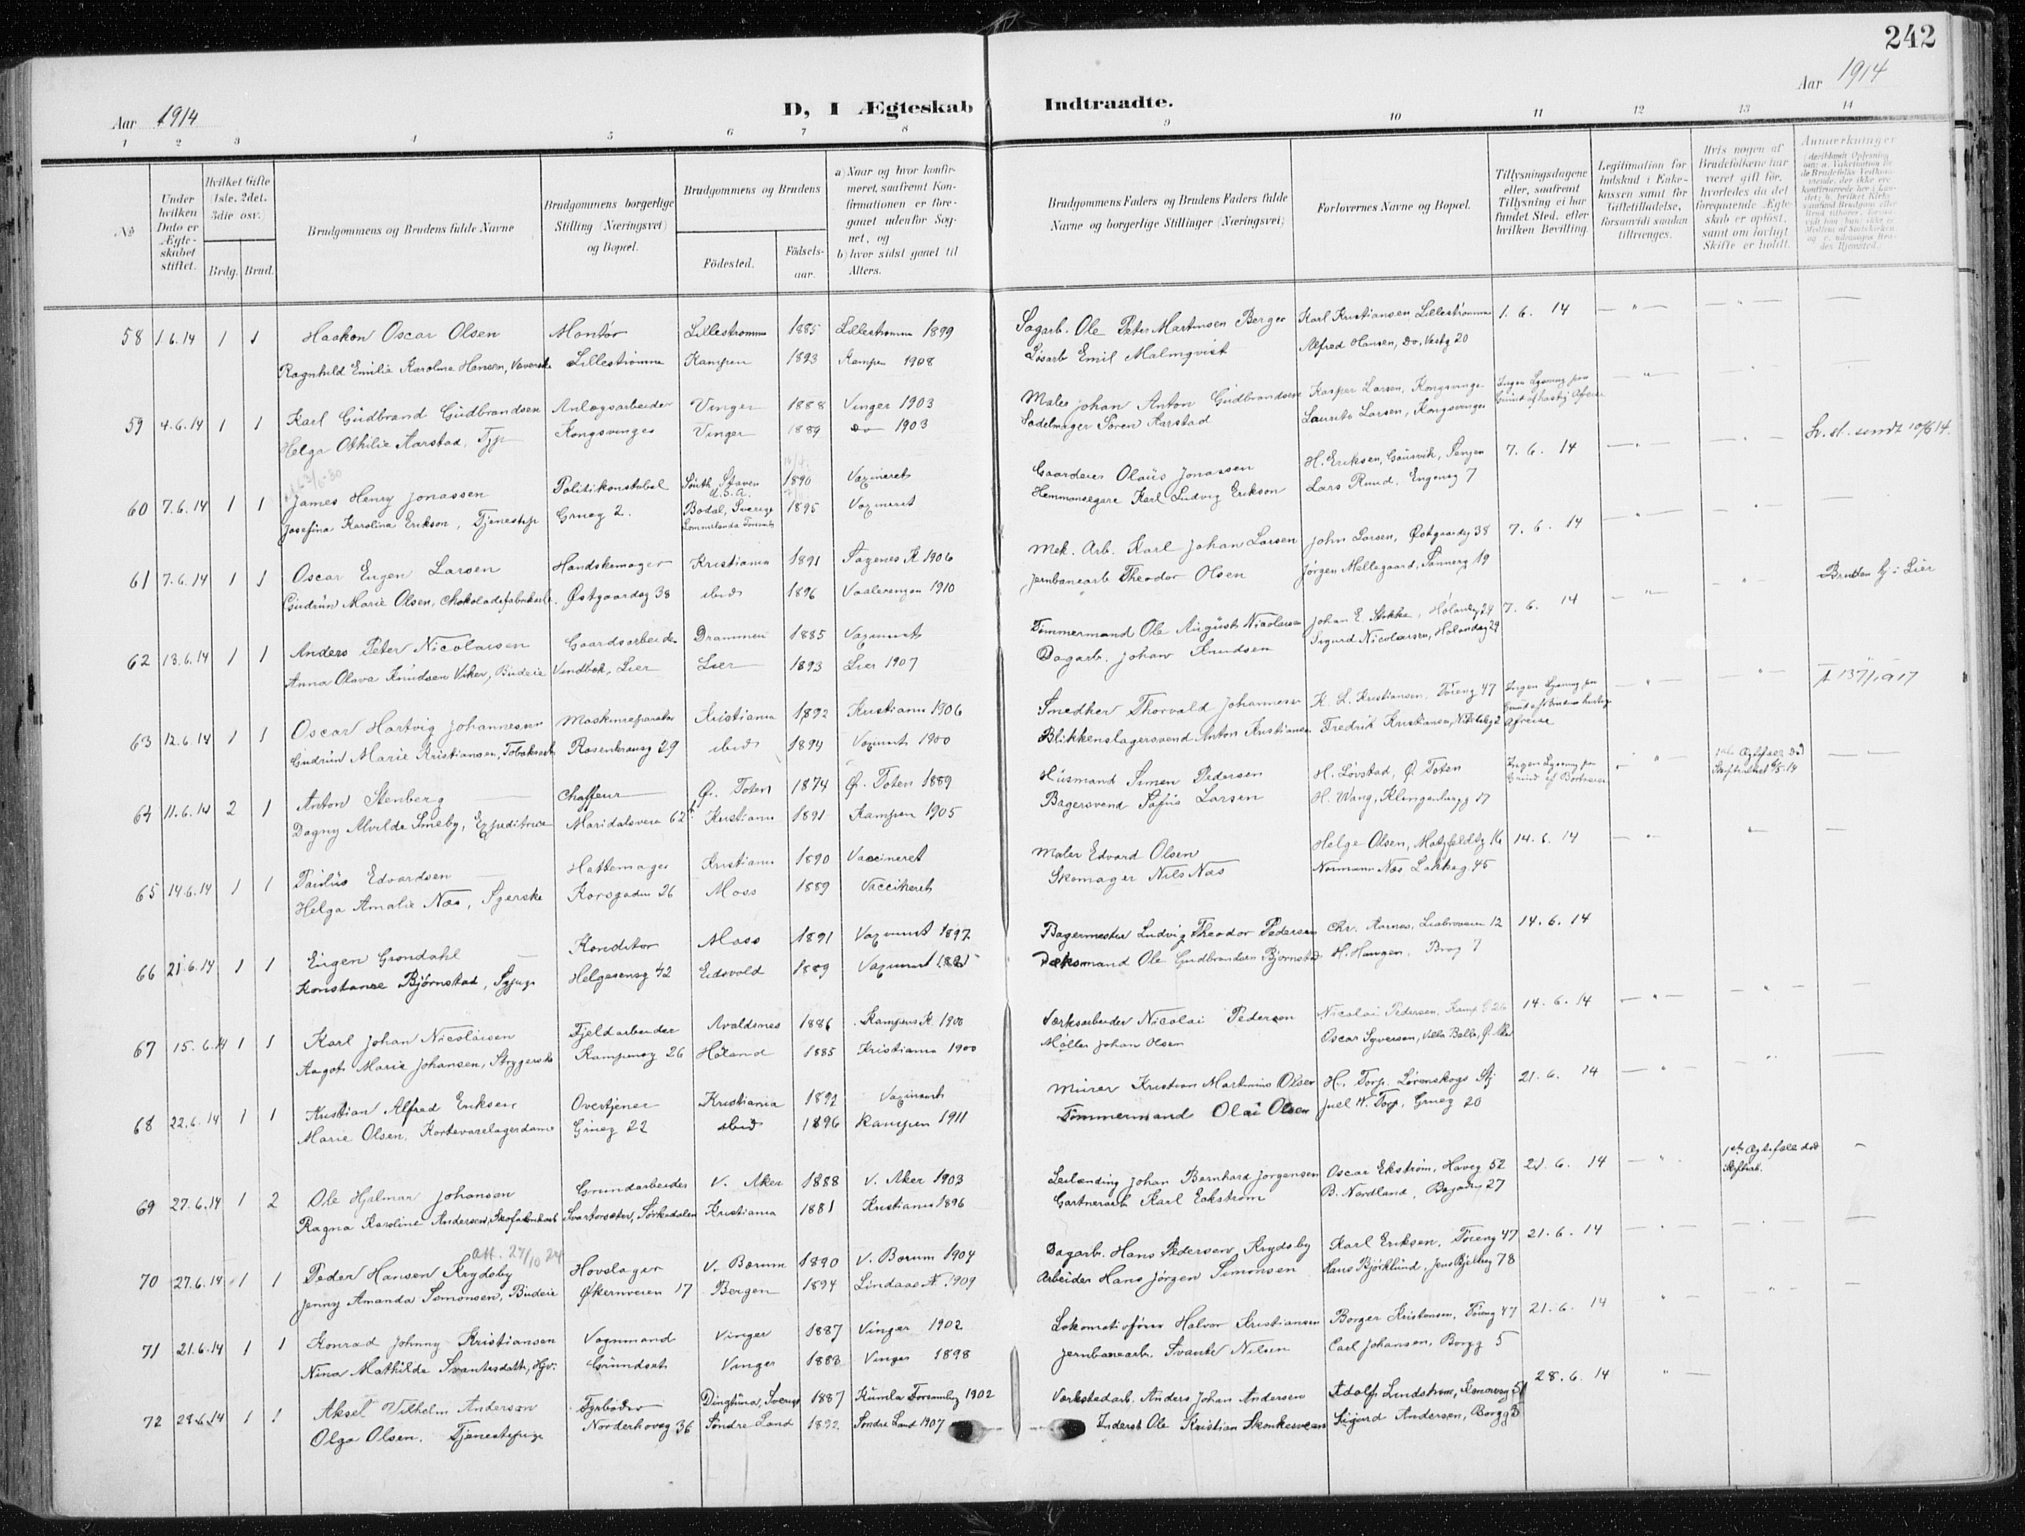 242
Aar 1914
D, I Ægteskab Indtraadte.
Aar 1914
1 2 3 4 5 6 7 8 9 10 11 12 13 14
No
Under hvilken Dato er Ægteskabet stiftet.
Hvilket Gifte 1ste. 2det. 3die osv.
Brdg. Brud.
Brudgommens og Brudens fulde Navne
Brudgommens borgerlige Stilling (Næringsvei) og Bopæl.
Brudgommens og Brudens
Födested. Födselsaar.
a) Naar og hvor konfirmeret, saafremt Konfirmationen er foregaaet udenfor Sognet, og
b) hvor sidst gaaet til Alters.
Brudgommens Faders og Brudens Faders fulde Navne og borgerlige Stillinger (Næringsvei).
Forlovernes Navne og Bopæl.
Tillysningsdagene eller, saafremt Tillysning ei har fundet Sted, efter hvilken Bevilling.
Legitimation for Indskud i Enkekassen samt for Giftetilladelse, forsaavidt saadan tiltrænges.
Hvis nogen af Brudefolkene har været gift för, hvorledes da det foregaaende Ægteskab er oplöst, samt om lovligt Skifte er holdt.
Anmærkninger
58 1.6.14 1 1 Haakon Oscar Olsen Montör Lillestrømme 1885 Lillestrømme 1899 Sagarb. Ole Peter Martinsen Berger Karl Kristiansen Lillestrømme 1. 6. 14
Ragnhild Emilie Karoline Hansen, Væverske Lillestrømme Kampen 1893 Kampen 1908 Løsarb Emil Malmqvist Alfred Hansen, Do, Vestg 20
59 4.6.14 1 1 Karl Gudbrand Gudbrandsen Anlægsarbeider Vinger 1888 Vinger 1903 Maler Johan Anton Gudbrandsen Kasper Larsen, Kongsvinger Ingen Lysning paa
Helga Othilie Aarstad, Tjp Kongsvinger Vinger 1889 Do 1903 Sadelmager Søren Aarstad Laurits Larsen, Kongsvinger Grund af hastig Afreise
60 7.6.14 1 1 James Henry Jonassen Politikonstabel South Staven U.S.A. 1890 Vaxineret Gaardeier Olaus Jonassen H. Eriksen, Gausvik, Senjen 7. 6. 14 Lv. st. sendt 10/6 14.
Josefina Karolina Erikson, Tjenestep Grueg 2. Bodal, Sverige 1895 Vaxineret Hemmansegare Karl Ludvig Erikson Lars Ruud, Engensg 7
61 7.6.14 1 1 Oscar Eugen Larsen Handskemager Kristiania 1891 Sagenes K 1906 Mek. Arb. Karl Johan Larsen John Larsen, Østgaardsg 38 7. 6. 14
Gudrun Marie Olsen, Chokoladefabrikarb. Østgaardsg 38 ibid 1896 Vaalerengen 1910 Jernbanearb Theodor Olsen Jørgen Mellegaard, Sannerg 19
62 13.6.14 1 1 Anders Peter Nicolaisen Gaardsarbeider Drammen 1885 Vaxineret Tømmermand Ole August Nicolaisen Johan E. Stokke, Hølandsg 29 7. 6. 14 Bruden hj. i Lier
Anna Olava Knudsen Viker, Budeie Vendbek, Lier Lier 1893 Lier 1907 Dagarb. Johan Knudsen Sigurd Nicolaisen, Hølandsg 29
63 12.6.14 1 1 Oscar Hartvig Johannesen Maskinreparatør Kristiania 1892 Kristiania 1906 Smedker Thorvald Johannesen K. L. Kristiansen, Tøieng 47 Ingen Lysning paa
Gudrun Marie Kristiansen, Tobaksarb Rosenkransg 29 ibid 1894 Vaxineret 1900 Blikkenslagersvend Anton Kristiansen Fredrik Kristiansen, Afreise
64 11.6.14 2 1 Anton Stenberg Chaffeur Ø. Toten 1874 Ø. Toten 1889 Husmand Simen Pedersen H. Løvstad, Ø. Toten Ingen Lysning paa 1ste Ægtefælle Død
Dagny Alvilde Smeby, Expeditrice Maridalsveien 62 Kristiania 1891 Kampen 1905 Bagersvend Sofus Larsen H. Wang, Klingenbergg 17 Grund af Bortreise
65 14.6.14 1 1 Paulus Edvardsen Hattemager Kristiania 1890 Vaccineret Maler Edvard Olsen Helge Olsen, 16 14. 6. 14
Helga Amalie Næs, Syerske Korsgaden 26 Moss 1889 Vaccineret Skomager Nils Næs Normann Næs Lakkeg 45
66 21.6.14 1 1 Eugen Grøndahl Konditor Moss 1891 Vaxineret 1897 Bagermester Ludvig Theodor Pedersen Chr. Aarnæs, 12 14. 6. 14
Konstanse Bjørnstad, Sypige Helgesensg 42 Eidsvold 1889 Vaxineret Ole Gudbrandsen Bjørnstad H. Haugen, Brog 7
67 15.6.14 1 1 Karl Johan Nicolaisen Fjeldarbeider Avaldsnes 1886 Kampens K. 1900 Værksarbeider Nicolai Pedersen Nicolai Pedersen, Kampeng 26 14. 6. 14
Aagot Marie Johansen, Strygerske Kampeng 26 Høland 1885 Kristiania 1900 Møller Johan Olsen Oscar Syversen, Villa Balba, Ø. Aker
68 22.6.14 1 1 Kristian Alfred Eriksen Overtjener Kristiania 1892 Vaxineret Murer Kristian Martinius Olsen H. Torp, Lørenskogs Stj 21. 6. 14
Marie Olsen, Kortevarelagerdame Grueg 22 ibid 1896 Kampen 1911 Tømmermand Olai Olsen Juel H. Torp, Grueg 20
69 27.6.14 1 2 Ole Hjalmar Johansen Grundarbeider V. Aker 1888 V. Aker 1903 Leilænding Johan Bernhard Jørgensen Oscar Ekstrøm, Haveg 52 21. 6. 14 1ste Ægtefælle død
Ragna Karoline Andersen, Skofabrikarb Svartorsæter, Sørkedalen Kristiania 1881 Kristiania 1896 Gartnerarb Karl Eckstrøm B. Nordland, 27
att. 27/10 24
70 27.6.14 1 1 Peder Hansen Krydsby Hovslager V. Bærum 1890 V. Bærum 1904 Dagarb. Hans Pedersen, Krydsby Karl Eriksen, Tøieng 47 21. 6. 14
Jenny Amanda Simonsen, Budeie Økernveien 17 Bergen 1894 1909 Arbeider Hans Jørgen Simonsen Hans Bjørklund, Jens Bjelkeg 78
71 21.6.14 1 1 Konrad Johnny Kristiansen Vognmand Vinger 1887 Vinger 1902 Lokomotivfører Halvor Kristiansen Borger Kristensen, Tøieng 47 21. 6. 14
Nina Mathilde Svantesdatt, Hjv. Grundset Vinger 1883 Vinger 1898 Jernbanearb. Svante Nilsen Carl Johansen, Borgg 5
72 28.6.14 1 1 Aksel Vilhelm Andersen Fyrbøder Dingtuna, Sverige 1887 Kumla Forsamling 1902 Værkstedarb. Anders Johan Andersen Adolf Lindstrøm, 28. 6. 14
Olga Olsen, Tjenestepige Norderhovsg 36 Søndre Land 1892 Søndre Land 1907 Inderst Ole Kristian Skonkesveen Sigurd Andersen, Borgg 3